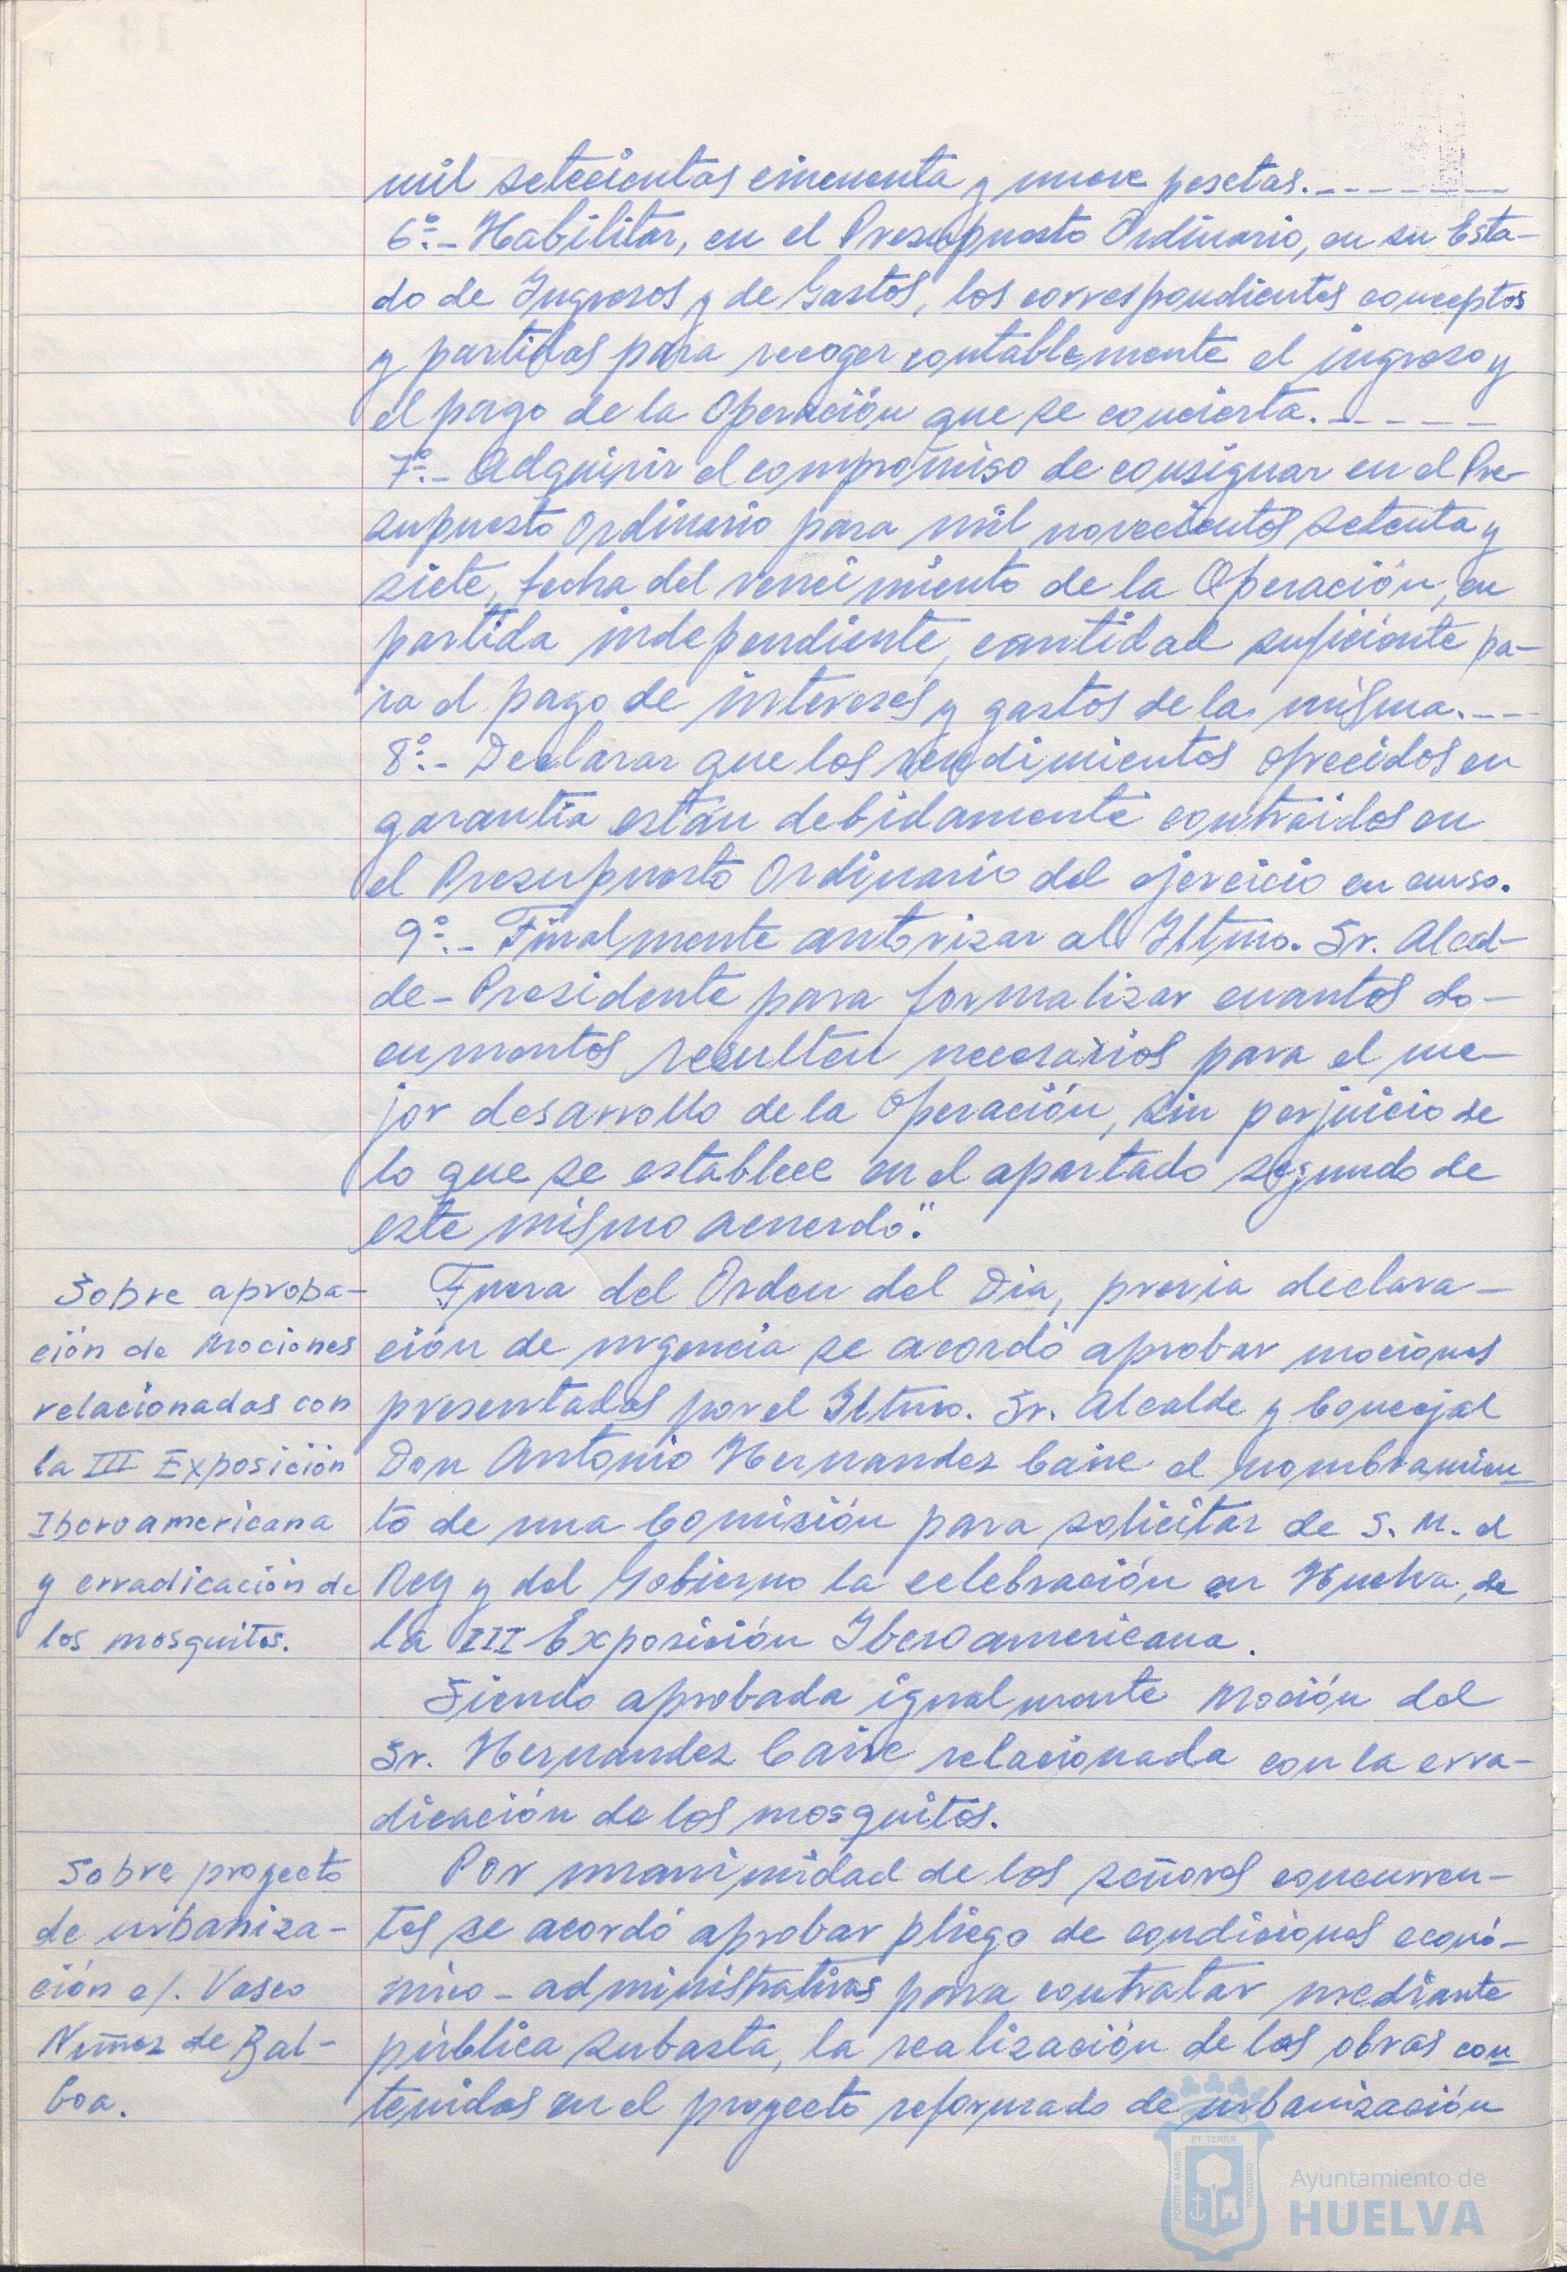 mil setecientas cincuenta y nueve pesetas.-------
6º.- Habilitar, en el Presupuesto Ordinario, en su Esta-
do de Ingresos y de Gastos, los correspondientes conceptos
y partidas para recoger contablemente el ingreso y
el pago de la Operación que se concierta.------
7º.- Adquirir el compromiso de consignar en el Pre-
supuesto Ordinario para mil novecientos setenta y
siete, fecha del vencimiento de la Operación, en
partida independiente, cantidad suficiente pa-
ra el pago de intereses y gastos de la misma.---
8º.- Declarar que los rendimientos ofrecidos en
garantía están debidamente contraidos en
el Presupuesto Ordinario del ejercicio en curso.
9º.- Finalmente autorizar al Iltmo. Sr. Alcal-
de-Presidente para formalizar cuantos do-
cumentos resulten necesarios para el me-
jor desarrollo de la Operación, sin perjuicio de
lo que se establece en el apartado segundo de
este mismo acuerdo".
Sobre aproba-
ción de Mociones
relacionadas con
la III Exposición
Iberoamericana
y erradicación de
los mosquitos.
Fuera del Orden del Dia, previa declara-
ción de urgencia se acordó aprobar mociones
presentadas por el Iltmo. Sr. Alcalde y Concejal
Don Antonio Hernandez Caire el nombramien-
to de una Comisión para solicitar de S. M. el
Rey y del Gobierno la celebración en Huelva, de
la III Exposición Iberoamericana.
Siendo aprobada igualmente Moción del
Sr. Hernandez Caire relacionada con la erra-
dicación de los mosquitos.
Sobre proyecto
de urbaniza-
ción c/. Vasco
Nuñez de Bal-
boa.
Por unanimidad de los señores concurren-
tes se acordó aprobar pliego de condiciones econó-
mico-administrativas para contratar mediante
pública subasta, la realización de las obras con-
tenidas en el proyecto reformado de urbanización
PORTUS MARIS
ET TERRÆ
CUSTODIA
Ayuntamiento de
HUELVA